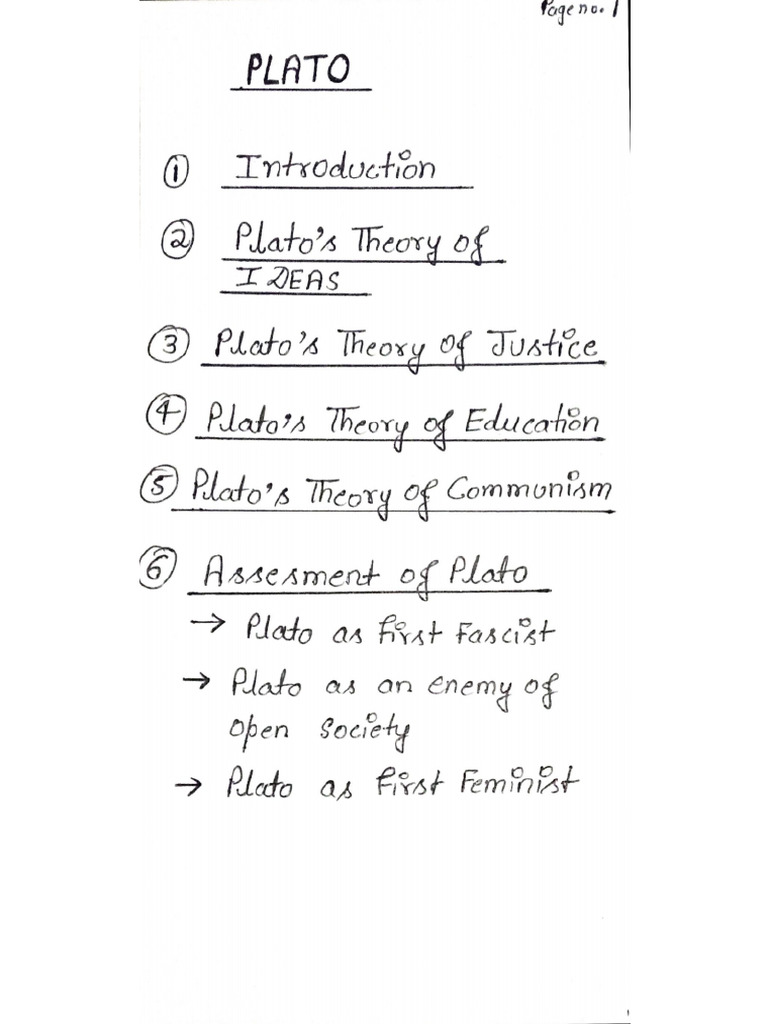 Page no. 1
PLATO
① Introduction
② Plato's Theory of
IDEAS
③ Plato's Theory of Justice
④ Plato's Theory of Education
⑤ Plato's Theory of Communism
⑥ Assesment of Plato
→ Plato as first Fascist
→ Plato as an enemy of
open society
→ Plato as first Feminist